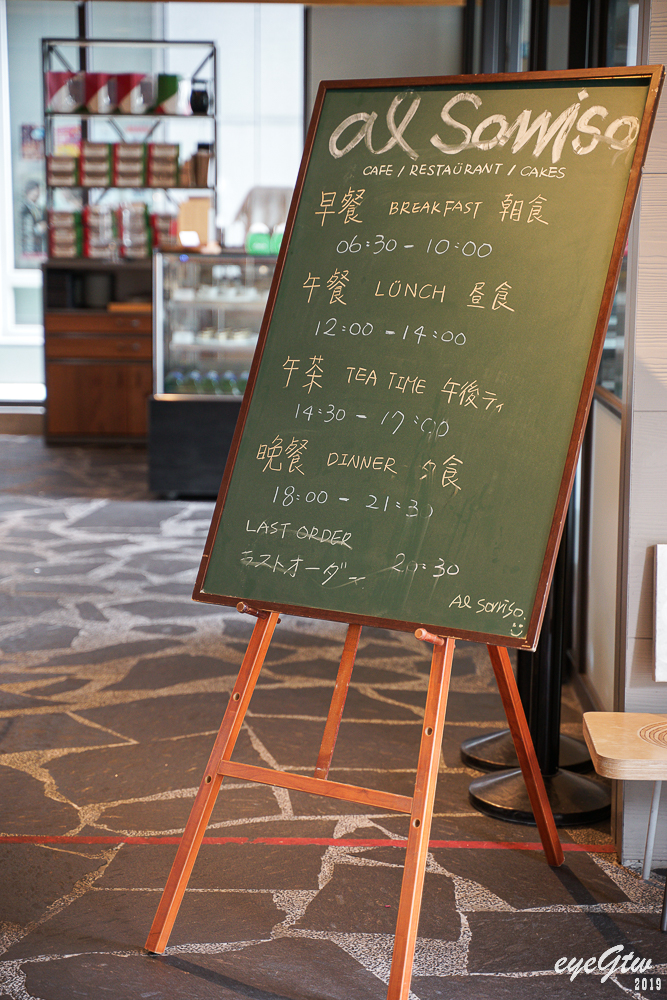 al Sorriso
CAFE / RESTAÜRANT / CAKES
早餐 BREAKFAST 朝食
06:30 - 10:00
午餐 LÜNCH 昼食
12:00 - 14:00
午茶 TEA TIME 午後ティ
14:30 - 17:00
晚餐 DINNER 夕食
18:00 - 21:30
LAST ORDER
ラストオーダー 20:30
Al Sorriso.
eyeGtw
2019